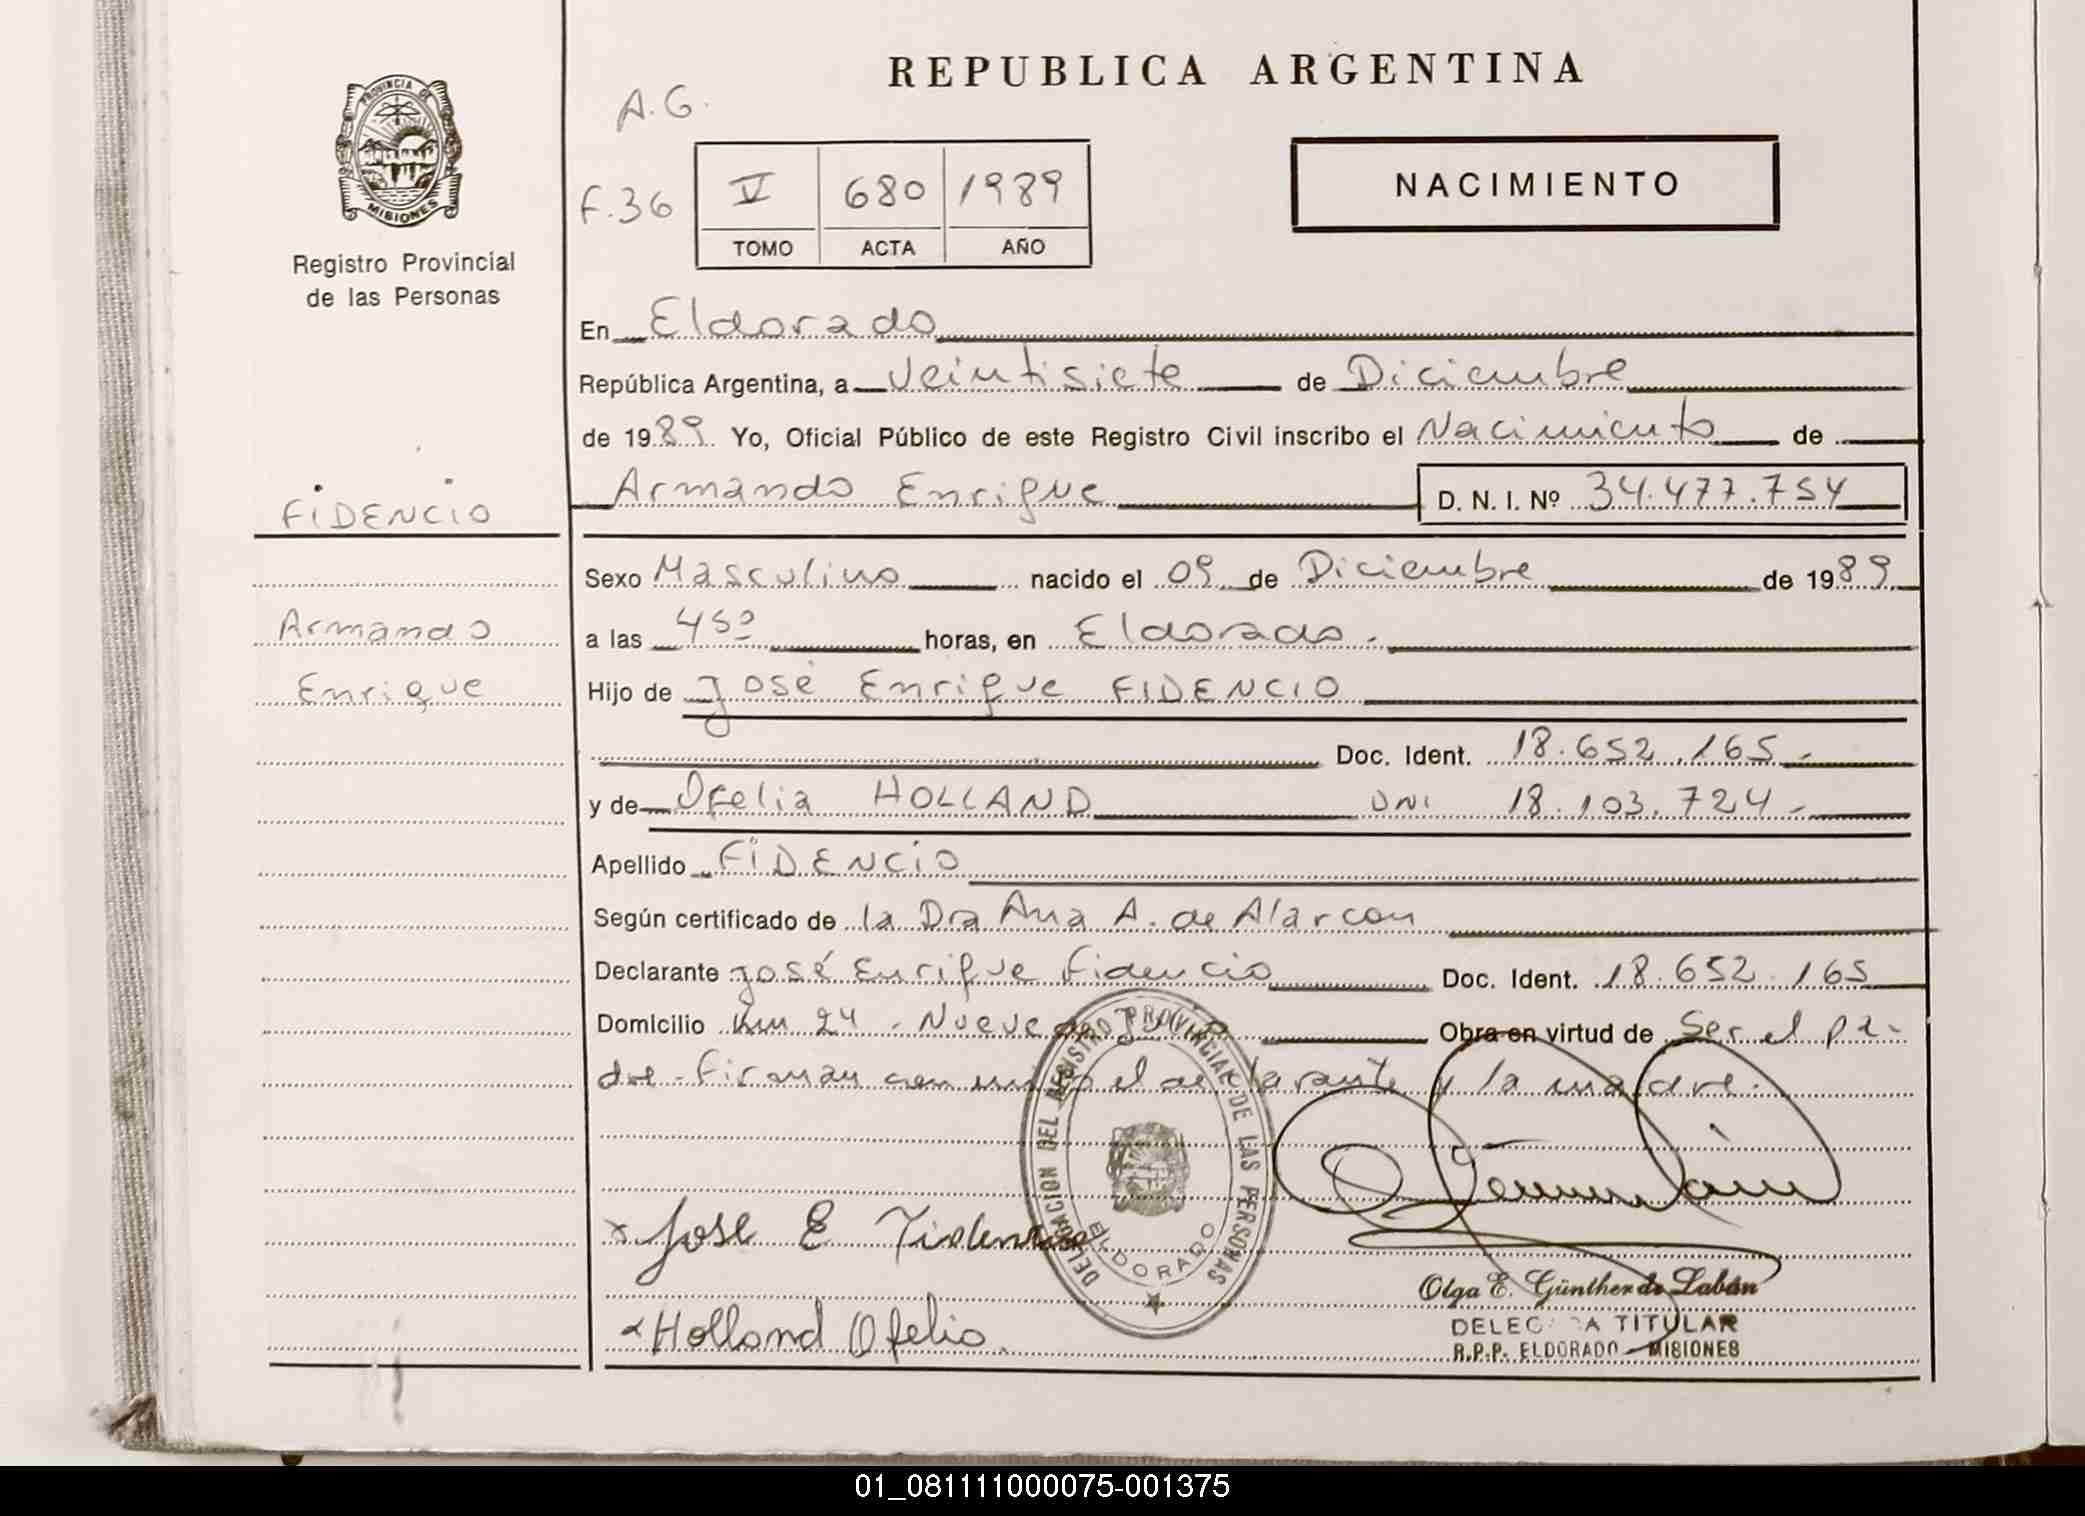 REPUBLICA ARGENTINA
PROVINCIA DE
MISIONES
Registro Provincial
de las Personas
A.G.
F.36
V 680 1989
TOMO ACTA AÑO
NACIMIENTO
En Eldorado
República Argentina, a veintisiete de Diciembre
de 1989 Yo, Oficial Público de este Registro Civil inscribo el Nacimiento de
Armando Enrique D. N. I. Nº 34.477.754
FIDENCIO
Armando
Enrique
Sexo Masculino nacido el 09 de Diciembre de 1989
a las 450 horas, en Eldorado.
Hijo de José Enrique FIDENCIO
Doc. Ident. 18.652.165.-
y de Ofelia HOLLAND DNI 18.103.724-
Apellido FIDENCIO
Según certificado de la Dra Ana A. de Alarcon
Declarante José Enrique Fidencio Doc. Ident. 18.652.165
Domicilio Km 24 - Nueve de Julio Obra en virtud de Ser el pa-
dre - Firman con migo el declarante y la madre.
DELEGACION DEL REGISTRO PROVINCIAL DE LAS PERSONAS
ELDORADO
Jose E Fidencio
Holland Ofelia
Olga E. Günther de Labán
TITULAR
R.P.P. ELDORADO - MISIONES
01_081111000075-001375